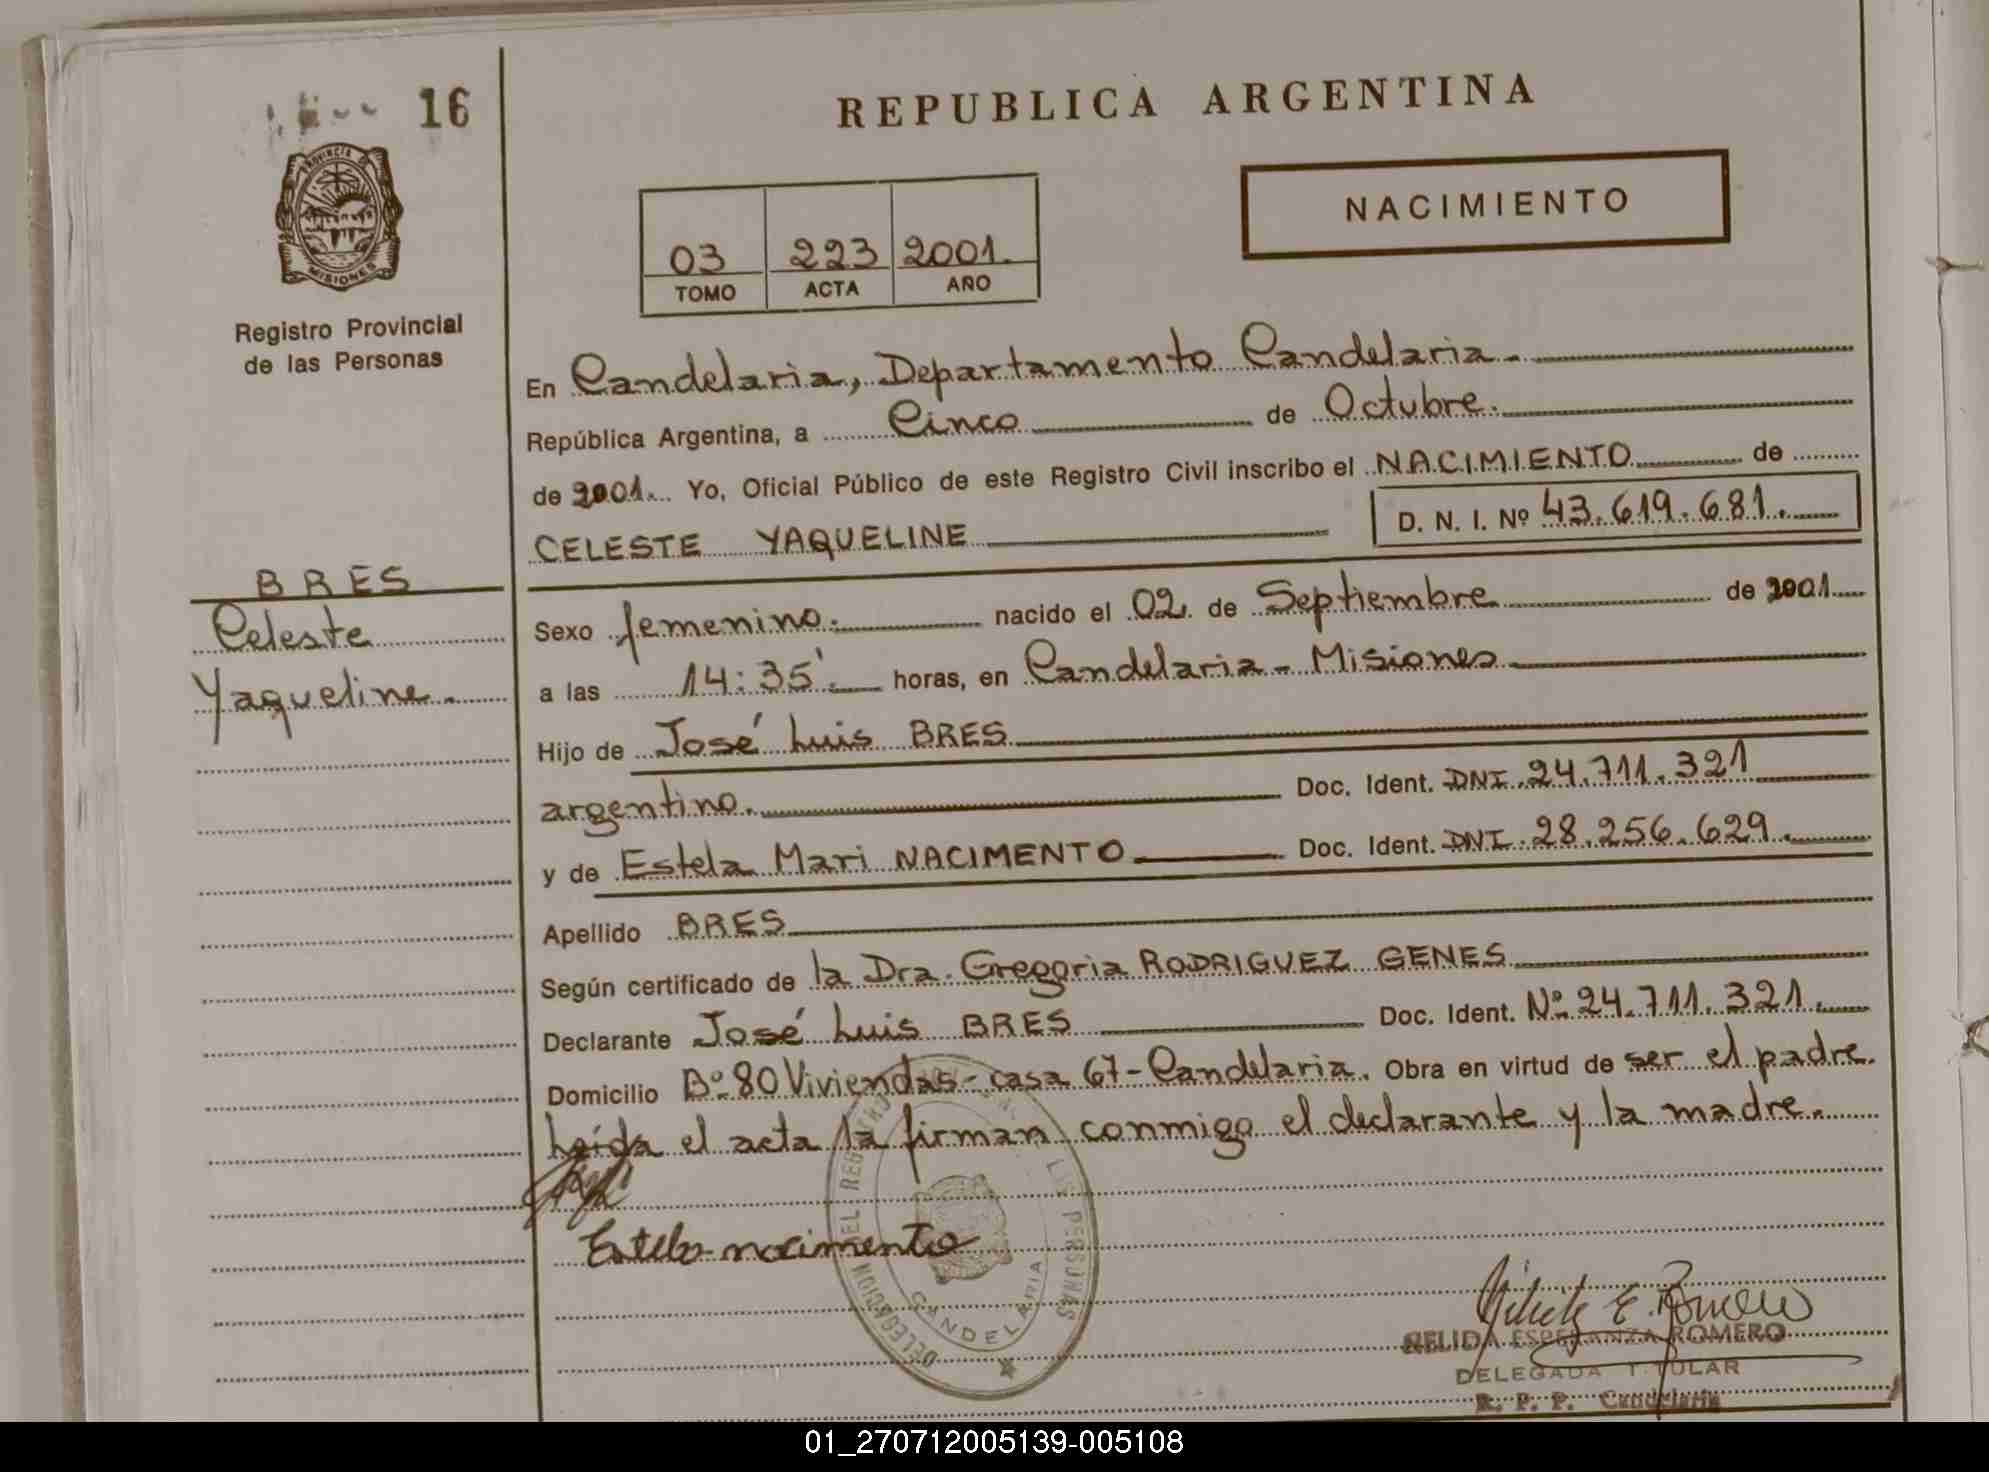 16
REPUBLICA ARGENTINA
NACIMIENTO
PROVINCIA DE
MISIONES
03 223 2001.
TOMO ACTA AÑO
Registro Provincial
de las Personas
En Candelaria, Departamento Candelaria.
República Argentina, a Cinco de Octubre.
de 2001. Yo, Oficial Público de este Registro Civil inscribo el NACIMIENTO de
CELESTE YAQUELINE D. N. I. Nº 43.619.681.
BRES
Celeste
Yaqueline.
Sexo femenino. nacido el 02 de Septiembre de 2001
a las 14:35'. horas, en Candelaria - Misiones
Hijo de José Luis BRES
argentino. Doc. Ident. DNI. 24.711.321
y de Estela Mari NACIMENTO Doc. Ident. DNI. 28.256.629.
Apellido BRES
Según certificado de la Dra. Gregoria RODRIGUEZ GENES
Declarante José Luis BRES Doc. Ident. Nº 24.711.321.
Domicilio Bº 80 Viviendas - casa 67 - Candelaria. Obra en virtud de ser el padre.
Leída el acta la firman conmigo el declarante y la madre.
Estela nacimento
DELEGACION DEL REGISTRO PERSONAS
CANDELARIA
E. Romero
NELIDA ESPERANZA ROMERO
DELEGADA TITULAR
R. P. P. Candelaria
01_270712005139-005108